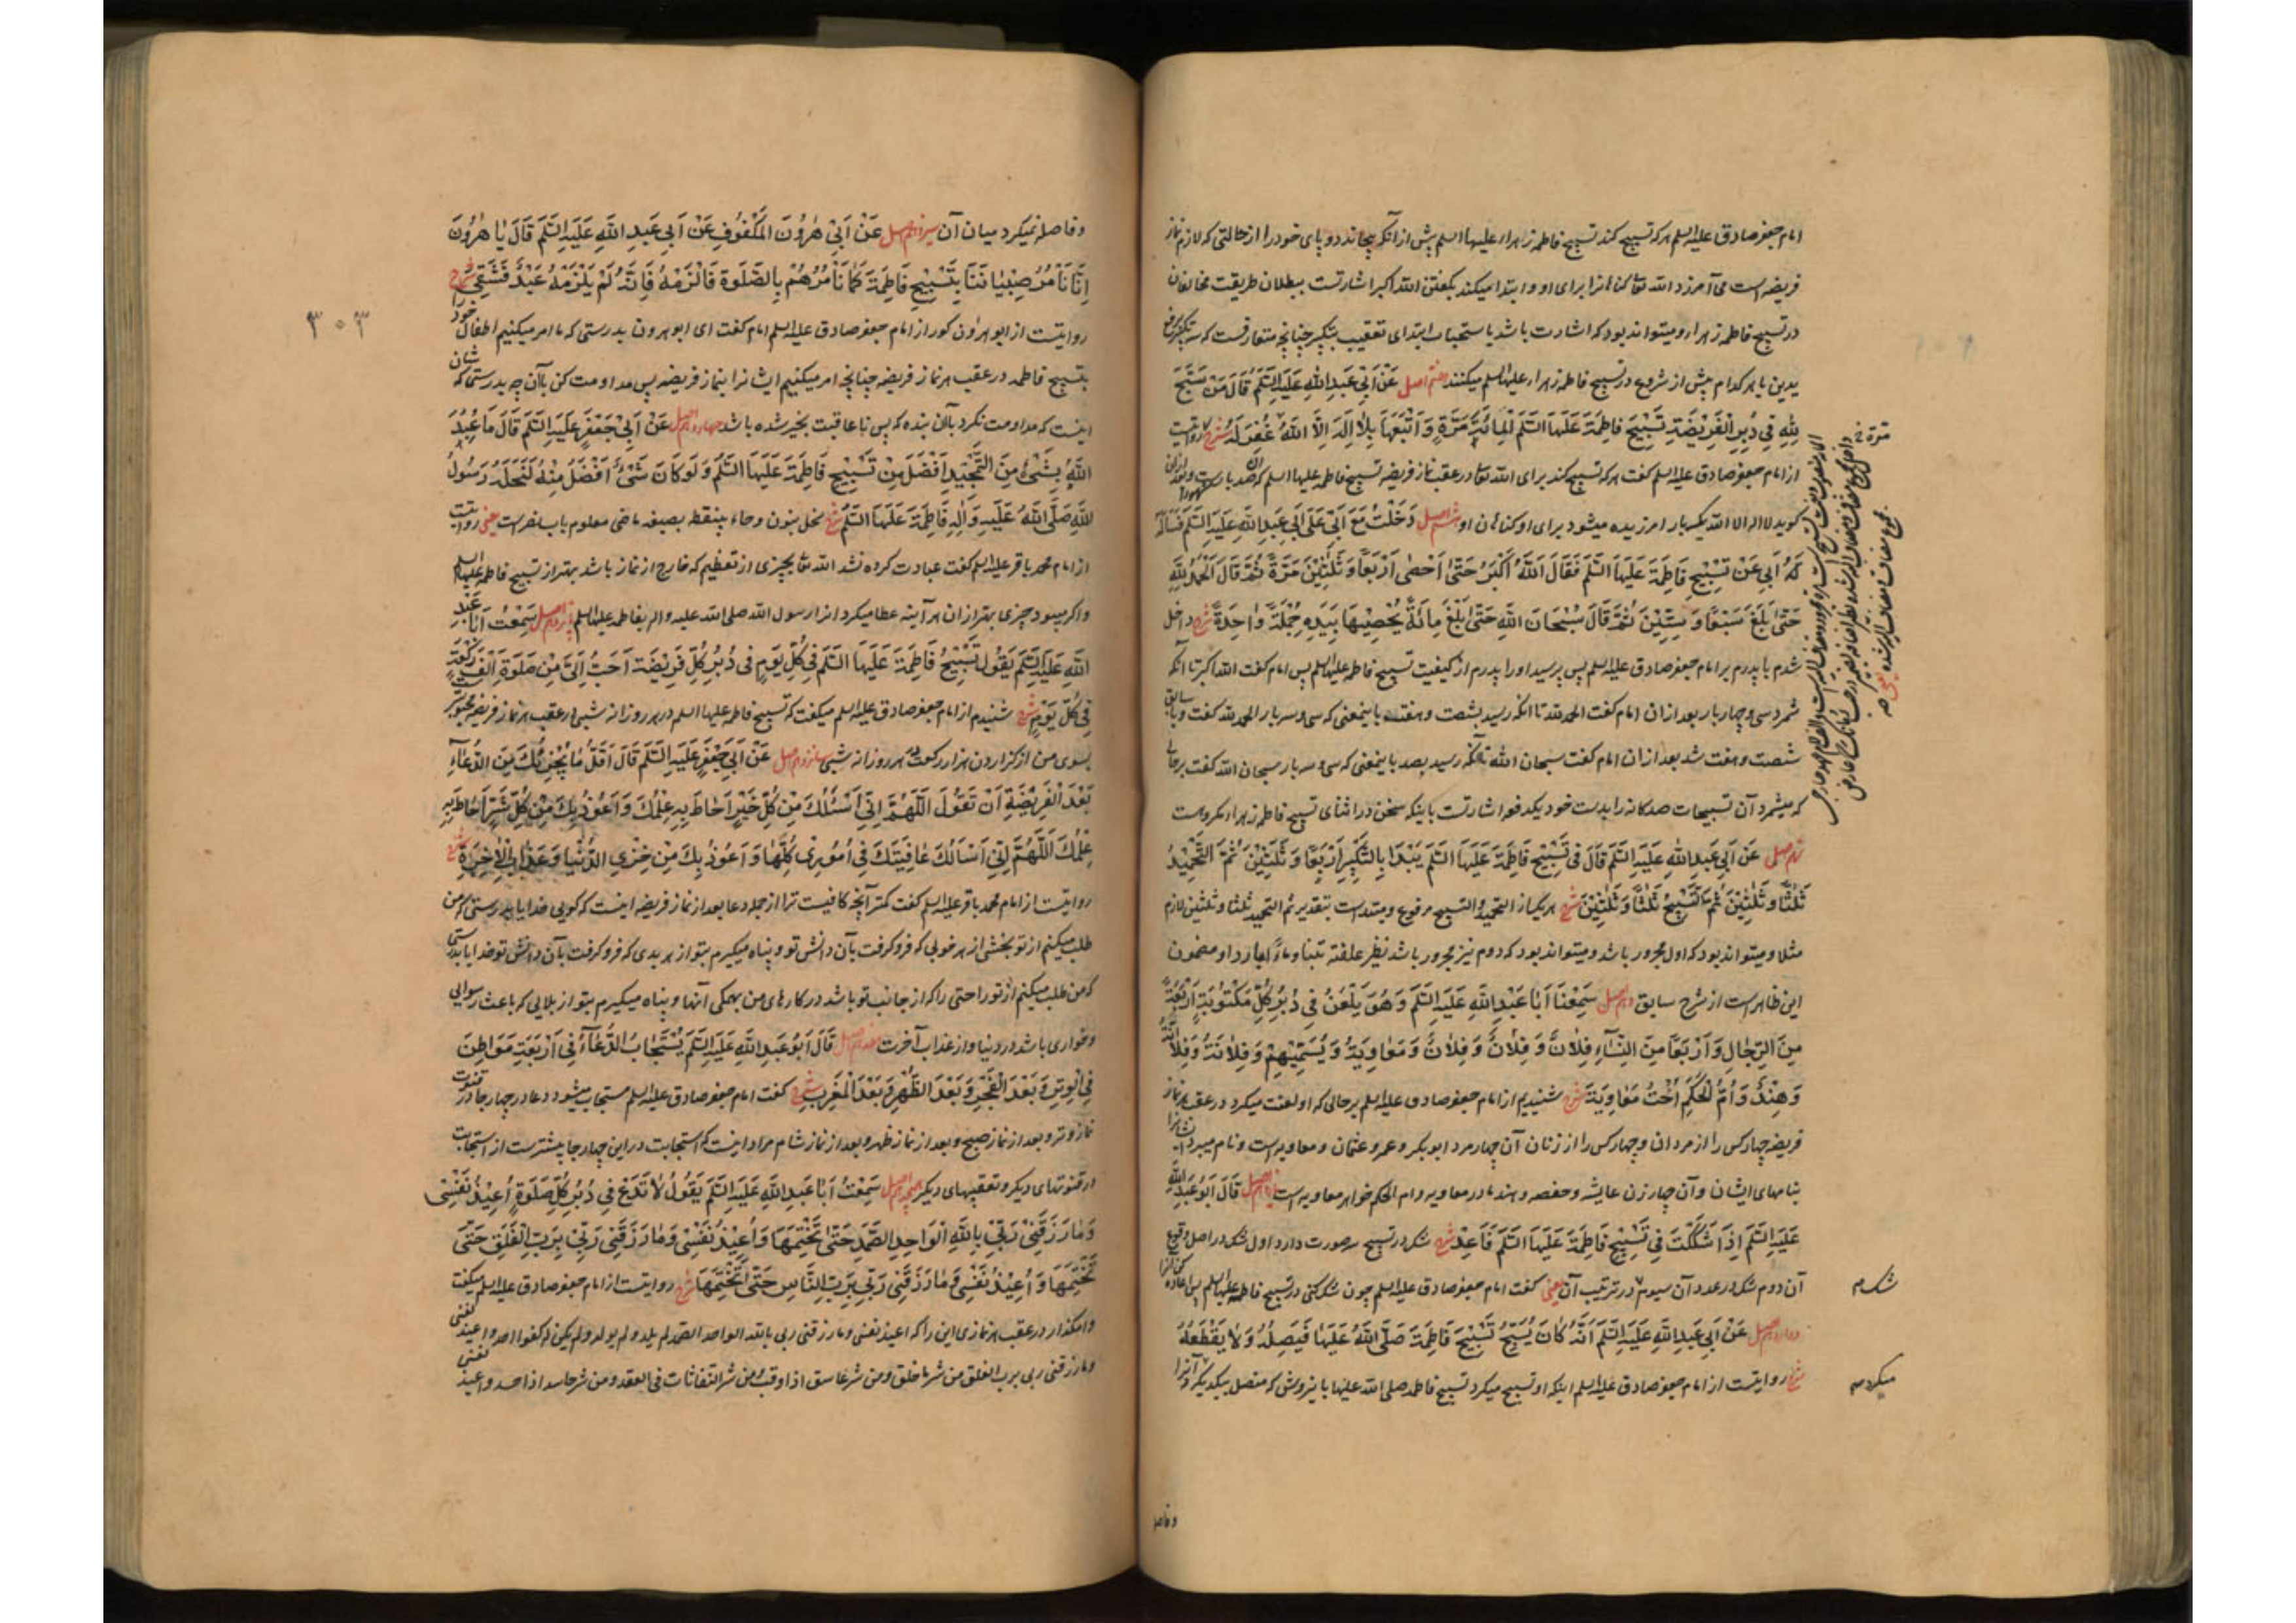 امام جعفر صادق علیه السلم هرکه تسبیح کند تسبیح فاطمه زهراء علیها السلم پیش از آنکه بپیچاند دو پای خود را از حالتی که لازم نماز
فریضه است می آمرزد الله تعا کناهانرا برای او و ابتدا میکند بکفتن الله اکبر اشارتست ببطلان طریقت مخالفان
در تسبیح فاطمه زهراء و میتواند بود که اشارت باشد باستحباب ابتدای تعقیب بتکبیر چنانچه متعارفست که سه تکبیر رفع
یدین با هر کدام پیش از شروع در تسبیح فاطمه زهراء علیها السلم میکنند هفتم اصل عَنْ اَبی عَبدِ اللهِ عَلَیهِ السَّلَمُ قَالَ مَنْ سَبَّحَ
لِلّهِ فی دُبُرِ الْفَریضَةِ تَسْبیحَ فاطِمَةَ عَلَیهَا السَّلَمُ الْمِائَةَ مَرَّةٍ وَ اَتْبَعَهَا بِلا اِلهَ اِلاَّ اللهُ غُفِرَ لَهُ شرح روایتست
از امام جعفر صادق علیه السلم کفت هرکه تسبیح کند برای الله تعا در عقب نماز فریضه تسبیح فاطمه علیها السلم که آن صد بارست و بعد از آن
کوید لا اله الا الله یکبار امرزیده میشود برای او کناهان او هشتم اصل دَخَلْتُ مَعَ اَبی عَلی اَبی عَبدِ اللهِ عَلَیهِ السَّلَمُ فَسَألَهُ
اَبی عَنْ تَسْبیحِ فاطِمَةَ عَلَیهَا السَّلَمُ فَقَالَ اَللهُ اَکْبَرُ حَتّی اَحْصی اَرْبَعًا وَ ثَلثینَ مَرَّةً ثُمَّ قَالَ اَلْحَمْدُ لِلّهِ
حَتّی بَلَغَ سَبْعًا وَ سِتّینَ ثُمَّ قَالَ سُبْحَانَ اللهِ حَتّی بَلَغَ مِائَةً یُحْصیهَا بِیَدِهِ جُمْلَةً وَاحِدَةً شرح داخل
شدم با پدرم بر امام جعفر صادق علیه السلم پس پرسید او را پدرم از کیفیت تسبیح فاطمه علیها السلم پس امام کفت الله اکبر تا آنکه
شمرد سی و چهار بار بعد از ان امام کفت الحمد لله تا انکه رسید بشصت و هفت باینمعنی که سی و سه بار الحمد لله کفت و با سابق
شصت و هفت شد بعد از ان امام کفت سبحان الله تا آنکه رسید بصد باینمعنی که سی و سه بار سبحان الله کفت برحالی
که میشمرد آن تسبیحات صدکانه را بدست خود یکدفعه اشارتست باینکه سخن در اثنای تسبیح فاطمه زهراء مکروهست
نهم اصل عَنْ اَبی عَبدِ اللهِ عَلَیهِ السَّلَمُ قَالَ فی تَسْبیحِ فاطِمَةَ عَلَیهَا السَّلَمُ یَبْدَا بِالتَّکْبیرِ اَرْبَعًا وَ ثَلثینَ ثُمَّ التَّحْمیدُ
ثَلثًا وَ ثَلثینَ ثُمَّ التَّسْبیحُ ثَلثًا وَ ثَلثینَ شرح هریک از التحمید و التسبیح مرفوع و مبتداست بتقدیر ثم التحمید ثلثا و ثلثین لازم
مثلا و میتواند بود که اول مجرور باشد و میتواند بود که دوم نیز مجرور باشد نظیر علفته تبنا و ماءً باردا و مضمون
این ظاهرست از شرح سابق دهم اصل سَمِعْنَا اَبَا عَبدِ اللهِ عَلَیهِ السَّلَمُ وَ هُوَ یَلْعَنُ فی دُبُرِ کُلِّ مَکْتُوبَةٍ اَرْبَعَةً
مِنَ الرِّجَالِ وَ اَرْبَعًا مِنَ النِّسَاءِ فُلانٌ وَ فُلانٌ وَ فُلانٌ وَ مُعَاوِیَةُ وَ یُسَمّیهِمْ وَ فُلانَةُ وَ فُلانَةُ
وَ هِنْدُ وَ اُمُّ الْحَکَمِ اُخْتُ مُعَاوِیَةَ شرح شنیدیم از امام جعفر صادق علیه السلم برحالی که او لعنت میکرد در عقب هر نماز
فریضه چهار کس را از مردان و چهار کس را از زنان آن چهار مرد ابوبکر و عمر و عثمان و معاویه است و نام میبرد ایشانرا
بنامهای ایشان و آن چهار زن عایشه و حفصه و هند مادر معاویه و ام الحکم خواهر معاویه است یازدهم اصل قَالَ اَبُو عَبدِ اللهِ
عَلَیهِ السَّلَمُ اِذَا شَکَکْتَ فی تَسْبیحِ فاطِمَةَ عَلَیهَا السَّلَمُ فَاَعِدْ شرح شک در تسبیح سه صورت دارد اول شک در اصل وقوع
آن دوم شک در عدد آن سیوم در ترتیب آن یعنی کفت امام جعفر صادق علیه السلم چون شک کنی در تسبیح فاطمه علیها السلم پس اعاده کن آنرا
دوازدهم اصل عَنْ اَبی عَبدِ اللهِ عَلَیهِ السَّلَمُ اَنَّهُ کَانَ یُسَبِّحُ تَسْبیحَ فاطِمَةَ صَلَّی اللهُ عَلَیهَا فَیَصِلُهُ وَ لا یَقْطَعُهُ
شرح روایتست از امام جعفر صادق علیه السلم اینکه او تسبیح میکرد تسبیح فاطمه صلی الله علیها باینروش که متصل بیکدیکر آنرا
مرّة
شک م
میکرد م
و فاصله
۳۰۳
و فاصله نمیکرد میان آن سیزدهم اصل عَنْ اَبی هرُونَ الْمَکْفُوفِ عَنْ اَبی عَبدِ اللهِ عَلَیهِ السَّلَمُ قَالَ یَا هرُونَ
اِنَّا نَأْمُرُ صِبْیَانَنَا بِتَسْبیحِ فاطِمَةَ کَمَا نَأْمُرُهُمْ بِالصَّلوةِ فَالْزَمْهُ فَاِنَّهُ لَمْ یَلْزَمْهُ عَبْدٌ فَشَقِیَ شرح
روایتست از ابو هرون کور از امام جعفر صادق علیه السلم امام کفت ای ابو هرون بدرستی که ما امر میکنیم اطفال خود
بتسبیح فاطمه در عقب هر نماز فریضه چنانچه امر میکنیم ایشانرا بنماز فریضه پس مداومت کن بآن چه بدرستی که شان
اینست که مداومت نکرد بآن بنده که پس ناعاقبت بخیر شده باشد چهاردهم اصل عَنْ اَبی جَعْفَرٍ عَلَیهِ السَّلَمُ قَالَ مَا عُبِدَ
اللهُ بِشَیْءٍ مِنَ التَّمْجیدِ اَفْضَلَ مِنْ تَسْبیحِ فاطِمَةَ عَلَیهَا السَّلَمُ وَ لَوْ کَانَ شَیْءٌ اَفْضَلَ مِنْهُ لَنَحَلَهُ رَسُولُ
اللهِ صَلَّی اللهُ عَلَیهِ وَ الِهِ فاطِمَةَ عَلَیهَا السَّلَمُ شرح نحل بنون و حاء بینقطه بصیغه ماضی معلوم باب منع است یعنی روایتست
از امام محمد باقر علیه السلم کفت عبادت کرده نشد الله تعا بچیزی از تعظیم که خارج از نماز باشد بهتر از تسبیح فاطمه علیها السلم
و اکر میبود چیزی بهتر از ان هر آینه عطا میکرد انرا رسول الله صلی الله علیه و اله بفاطمه علیها السلم پانزدهم اصل سَمِعْتُ اَبَا عَبدِ
اللهِ عَلَیهِ السَّلَمُ یَقُولُ تَسْبیحُ فاطِمَةَ عَلَیهَا السَّلَمُ فی کُلِّ یَوْمٍ فی دُبُرِ کُلِّ فَریضَةٍ اَحَبُّ اِلَیَّ مِنْ صَلوةِ اَلْفِ رَکْعَةٍ
فی کُلِّ یَوْمٍ شرح شنیدم از امام جعفر صادق علیه السلم میکفت که تسبیح فاطمه علیها السلم در هر روزانه شبی در عقب هر نماز فریضه محبوبتر
بسوی من از کزاردن هزار رکعت در هر روزانه شبی شانزدهم اصل عَنْ اَبی جَعْفَرٍ عَلَیهِ السَّلَمُ قَالَ اَقَلُّ مَا یُجْزِئُکَ مِنَ الدُّعَاءِ
بَعْدَ الْفَریضَةِ اَنْ تَقُولَ اَللّهُمَّ اِنّی اَسْئَلُکَ مِنْ کُلِّ خَیْرٍ اَحَاطَ بِهِ عِلْمُکَ وَ اَعُوذُ بِکَ مِنْ کُلِّ شَرٍّ اَحَاطَ بِهِ
عِلْمُکَ اَللّهُمَّ اِنّی اَسْاَلُکَ عَافِیَتَکَ فی اُمُوری کُلِّهَا وَ اَعُوذُ بِکَ مِنْ خِزْیِ الدُّنْیَا وَ عَذَابِ الاخِرَةِ شرح
روایتست از امام محمد باقر علیه السلم کفت کمتر آنچه کافیست ترا از جمله دعا بعد از نماز فریضه اینست که کویی خدایا بدرستی که من
طلب میکنم از تو بخشی از هر خوبی که فرو کرفت بآن دانش تو و پناه میکیرم بتو از هر بدی که فرو کرفت بآن دانش تو خدایا بدرستی
که من طلب میکنم از تو راحتی را که از جانب تو باشد در کارهای من بهمکی آنها و پناه میکیرم بتو از بلایی که باعث رسوایی
و خواری باشد در دنیا و از عذاب آخرت هفدهم اصل قَالَ اَبُو عَبدِ اللهِ عَلَیهِ السَّلَمُ یُسْتَجَابُ الدُّعَاءُ فی اَرْبَعَةِ مَوَاطِنَ
فِی الْوِتْرِ وَ بَعْدَ الْفَجْرِ وَ بَعْدَ الظُّهْرِ وَ بَعْدَ الْمَغْرِبِ شرح کفت امام جعفر صادق علیه السلم مستجاب میشود دعا در چهار جا در قنوت
نماز وتر و بعد از نماز صبح و بعد از نماز ظهر و بعد از نماز شام مراد اینست که استجابت در این چهار جا بیشترست از استجابت
در قنوتهای دیکر و تعقیبهای دیکر هیجدهم اصل سَمِعْتُ اَبَا عَبدِ اللهِ عَلَیهِ السَّلَمُ یَقُولُ لا تَدَعْ فی دُبُرِ کُلِّ صَلوةٍ اُعیذُ نَفْسی
وَ مَا رَزَقَنی رَبّی بِاللهِ الْوَاحِدِ الصَّمَدِ حَتّی تَخْتِمَهَا وَ اُعیذُ نَفْسی وَ مَا رَزَقَنی رَبّی بِرَبِّ الْفَلَقِ حَتّی
تَخْتِمَهَا وَ اُعیذُ نَفْسی وَ مَا رَزَقَنی رَبّی بِرَبِّ النَّاسِ حَتّی تَخْتِمَهَا شرح روایتست از امام جعفر صادق علیه السلم میکفت
وامکذار در عقب هر نمازی این را که اعیذ نفسی و ما رزقنی ربی بالله الواحد الصمد لم یلد و لم یولد و لم یکن له کفوا احد و اعیذ نفسی
و ما رزقنی ربی برب الفلق من شر ما خلق و من شر غاسق اذا وقب و من شر النفاثات فی العقد و من شر حاسد اذا حسد و اعیذ نفسی